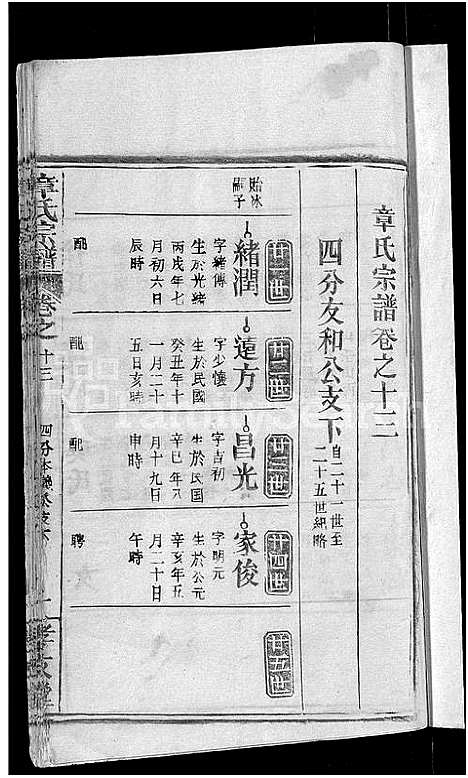 章氏宗譜卷之十三
四分友和公支下
自二十一世至
二十五世紀略
廿一世
貽冰
嗣子
緒潤
字緒傳
生於光緒
丙戌年七
月初六日
辰時
配
廿二世
蓮方
字少懷
生於民國
癸丑年十
一月二十
五日亥時
配
廿三世
昌光
字吉初
生於民国
辛巳年八
月十九日
申時
配
廿四世
家俊
字明元
生於公元
辛亥年五
月二十日
午時
聘
廿五世
章氏宗譜
卷之十三
四分